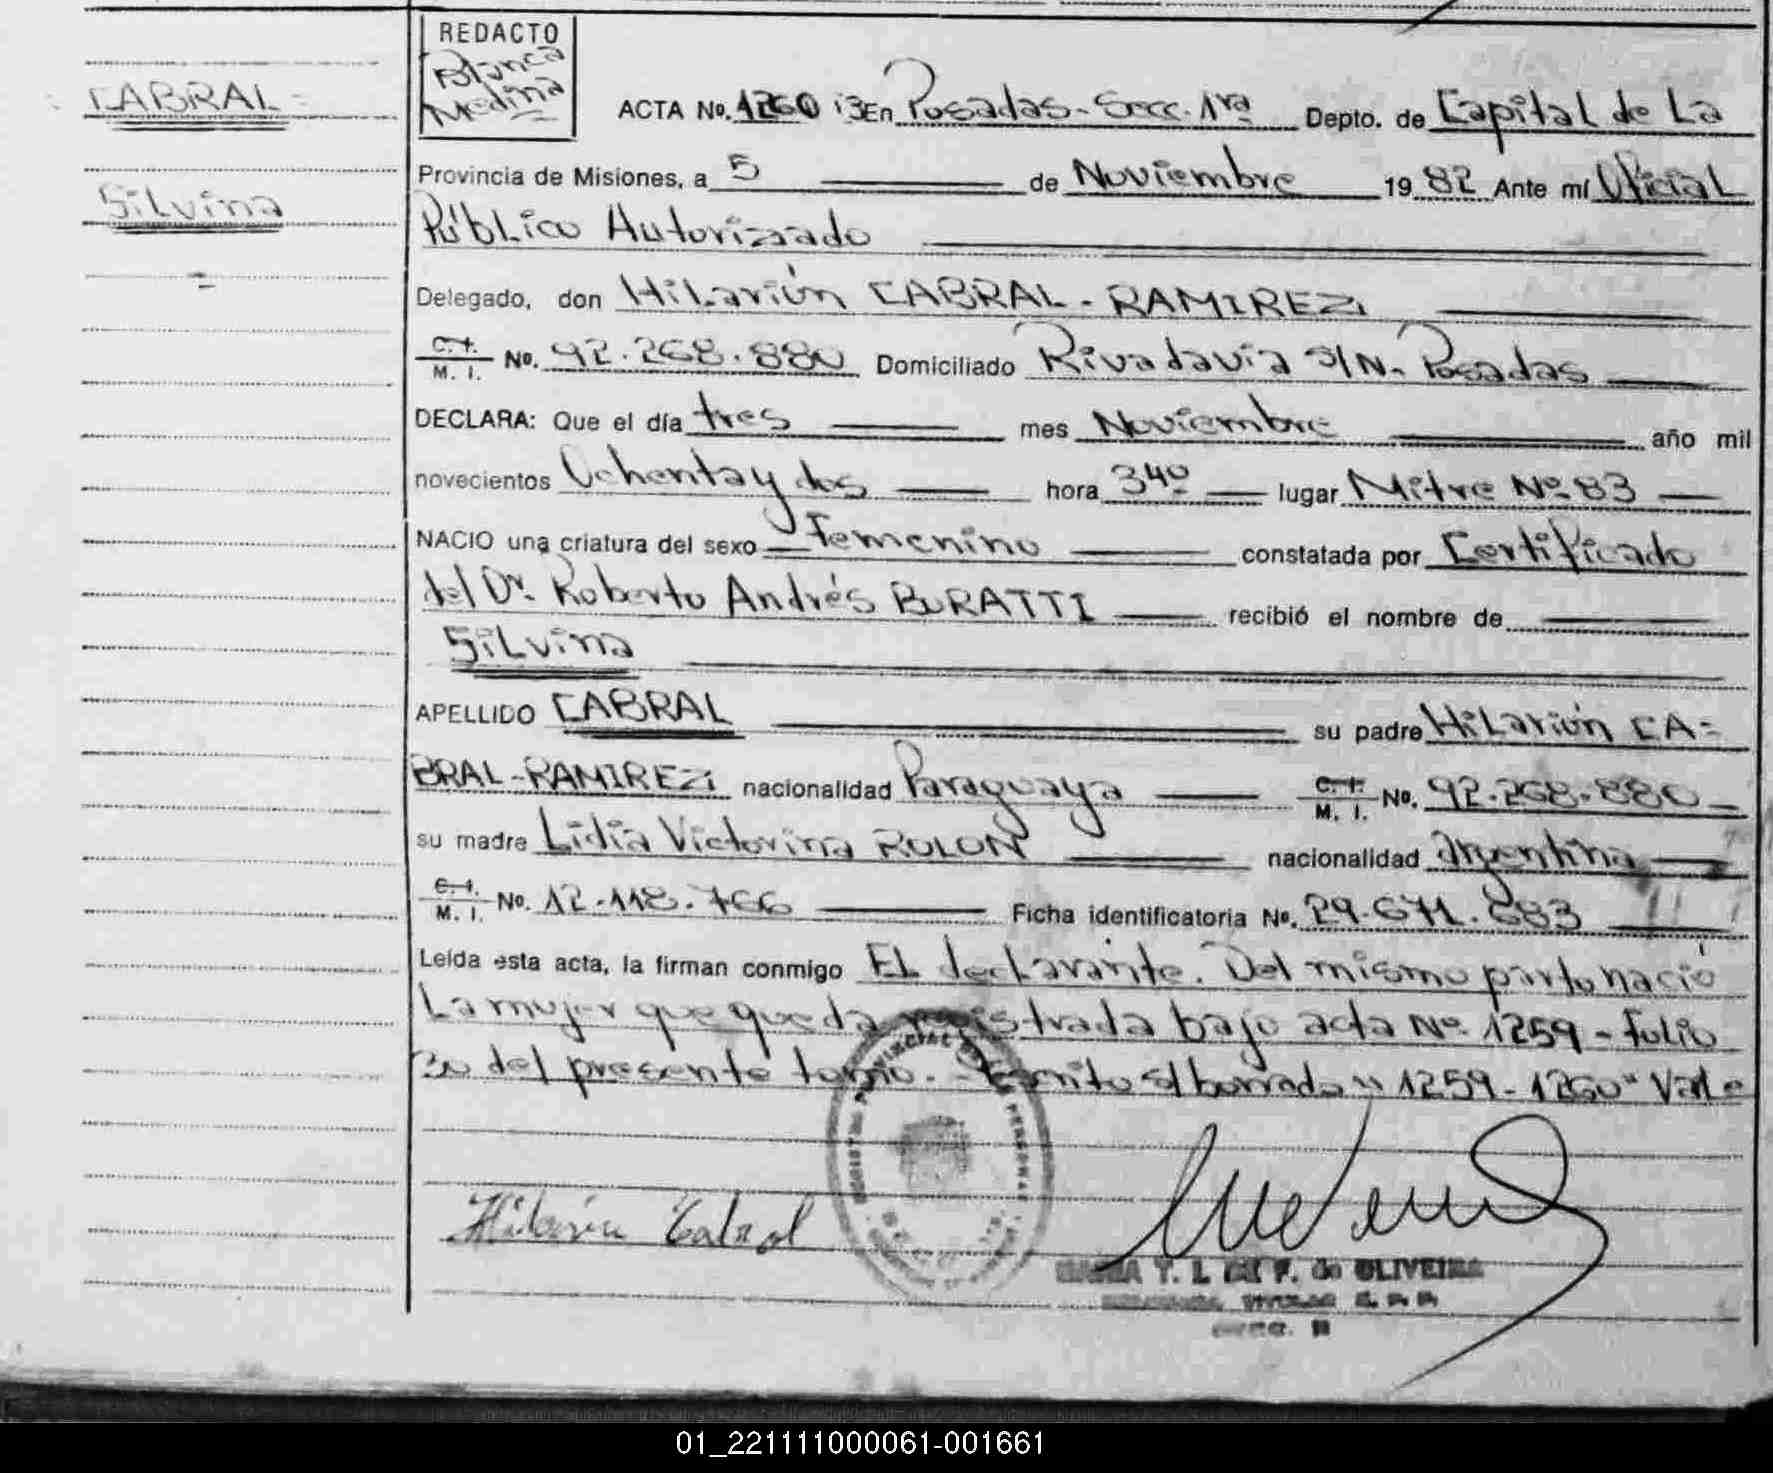 REDACTO
Blanca
Medina
CABRAL
ACTA No. 1260 En Posadas-Secc. 1ra Depto. de Capital de La
Silvina
Provincia de Misiones, a 5 de Noviembre 19 82 Ante mí Oficial
Público Autorizado
Delegado, don Hilarión CABRAL-RAMIREZ
C. I. M. I. No. 92.268.880 Domiciliado Rivadavia S/N. Posadas
DECLARA: Que el día tres mes Noviembre año mil
novecientos Ochenta y dos hora 3 40 lugar Mitre Nº 83
NACIO una criatura del sexo Femenino constatada por Certificado
del Dr. Roberto Andrés BURATTI recibió el nombre de
Silvina
APELLIDO CABRAL su padre Hilarión CA=
BRAL-RAMIREZ nacionalidad Paraguaya C. I. M. I. No. 92.268.880
su madre Lidia Victorina ROLON nacionalidad Argentina
C. I. M. I. No. 12.118.766 Ficha identificatoria No. 29.671.683
Leída esta acta, la firman conmigo El declarante. Del mismo parto nació
La mujer que queda registrada bajo acta Nº 1259 - Folio
30 del presente tomo. - borrado "1259-1260" Vale
Hilarión Cabral
Y. L. F. de OLIVEIRA
01_221111000061-001661